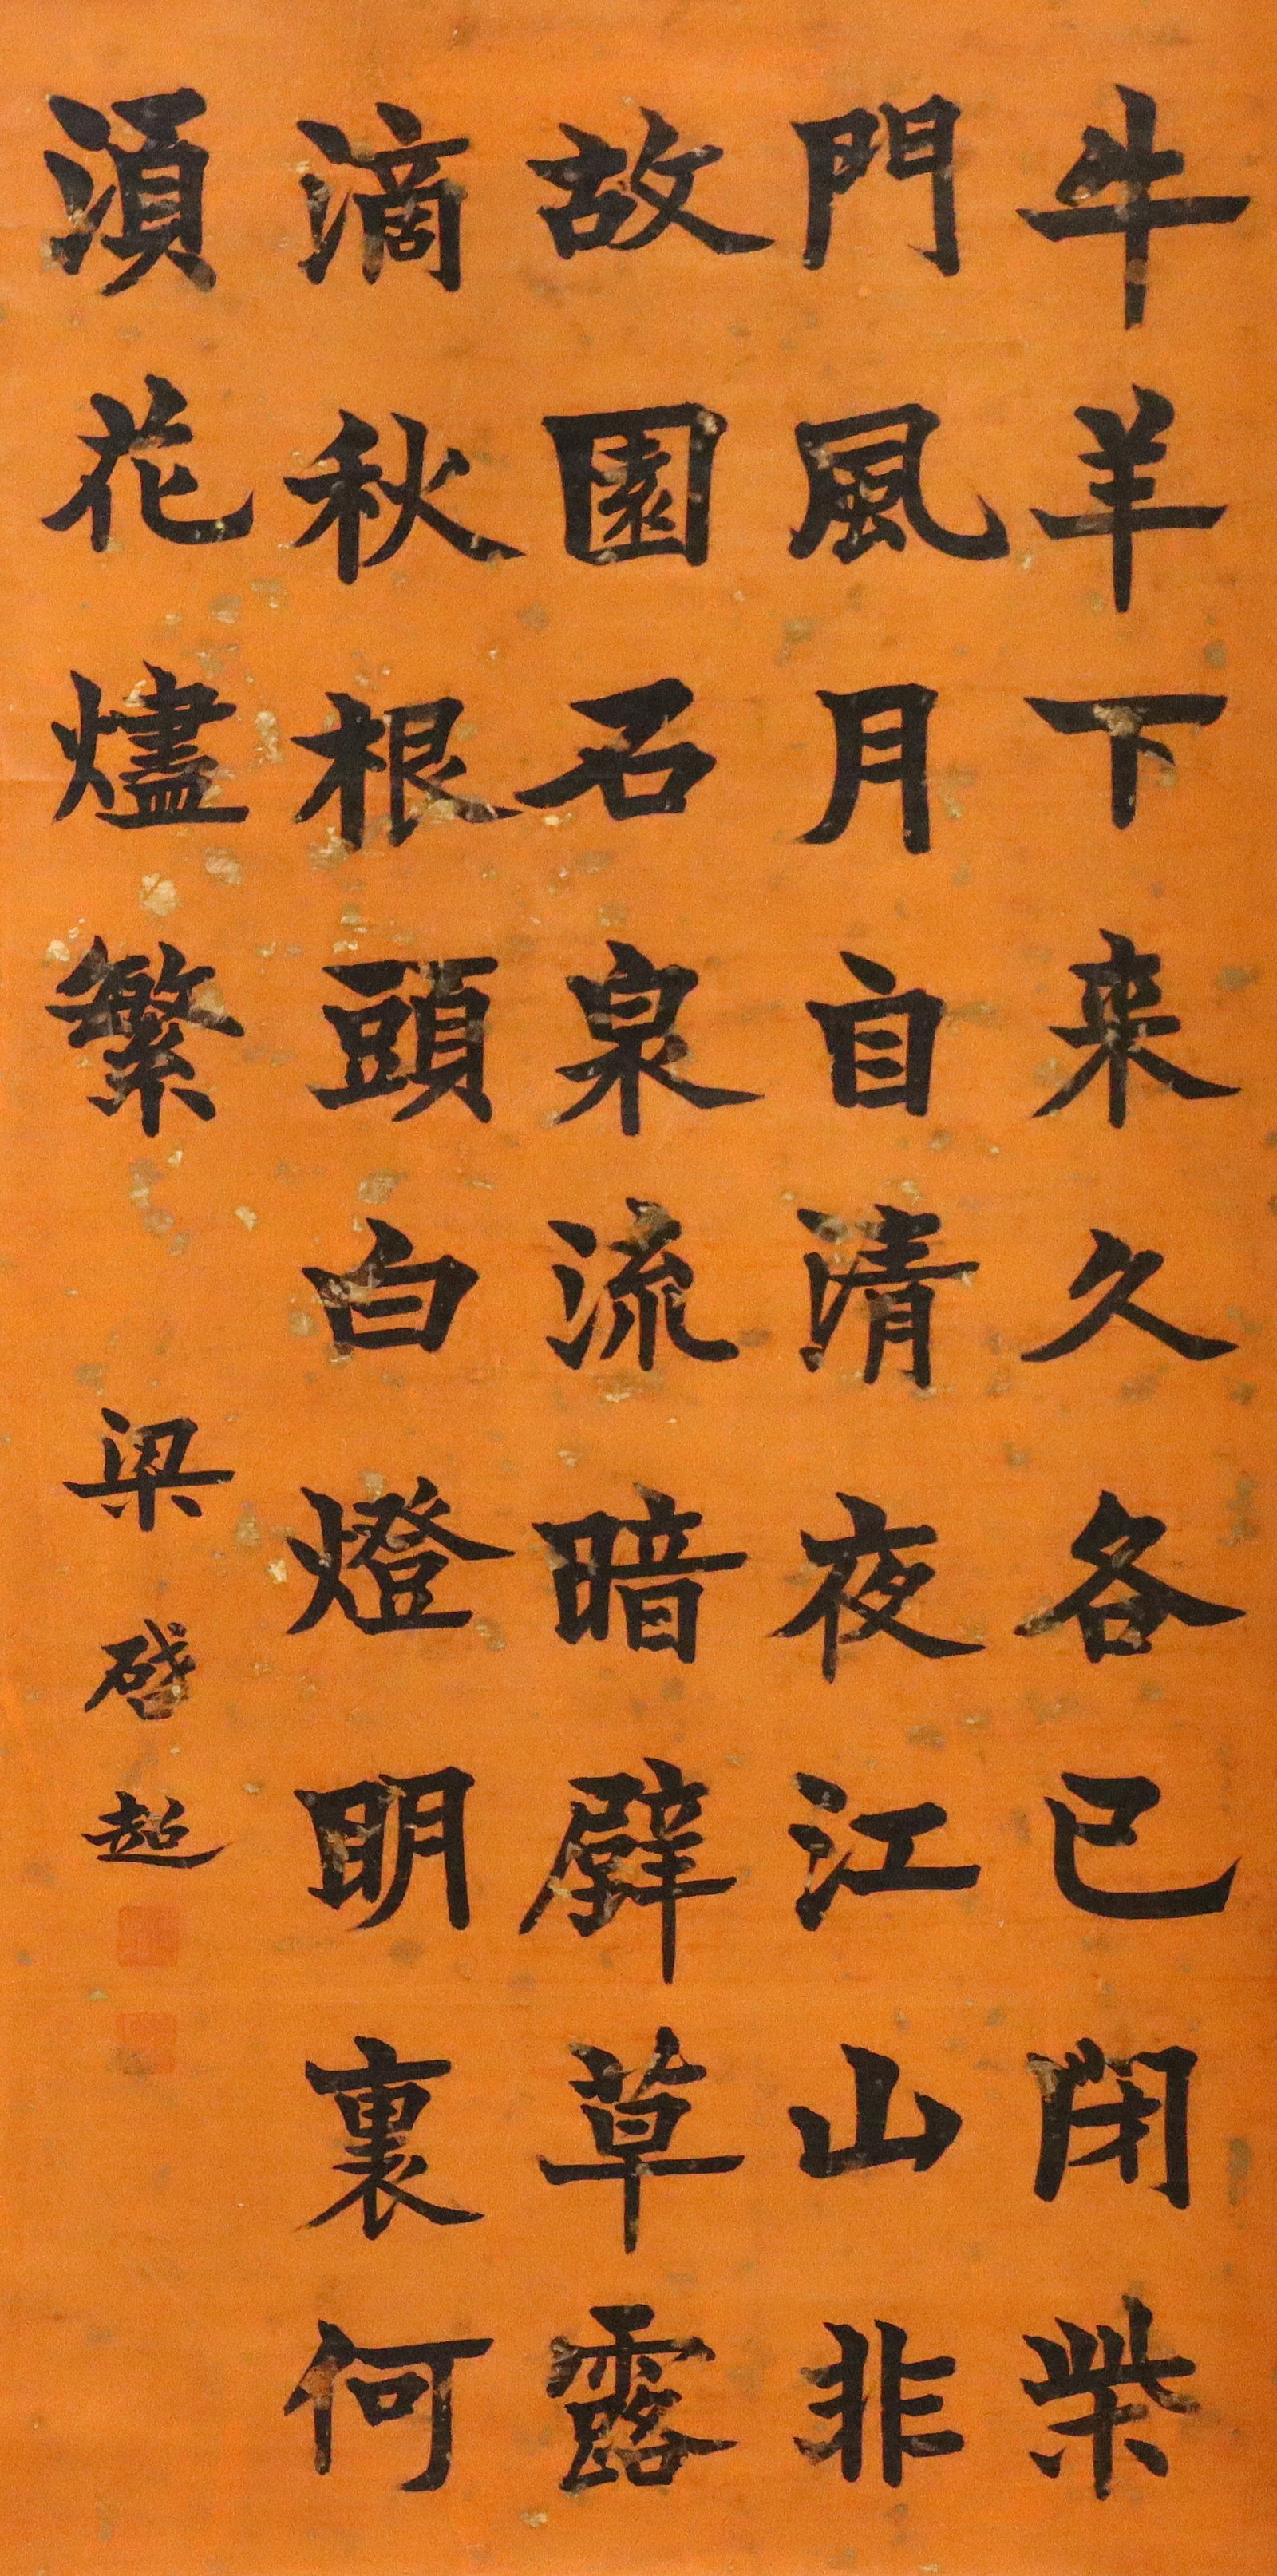 牛羊下来久各已閉柴
門風月自清夜江山非
故園石泉流暗壁草露
滴秋根頭白燈明裏何
須花燼繁
梁啓超